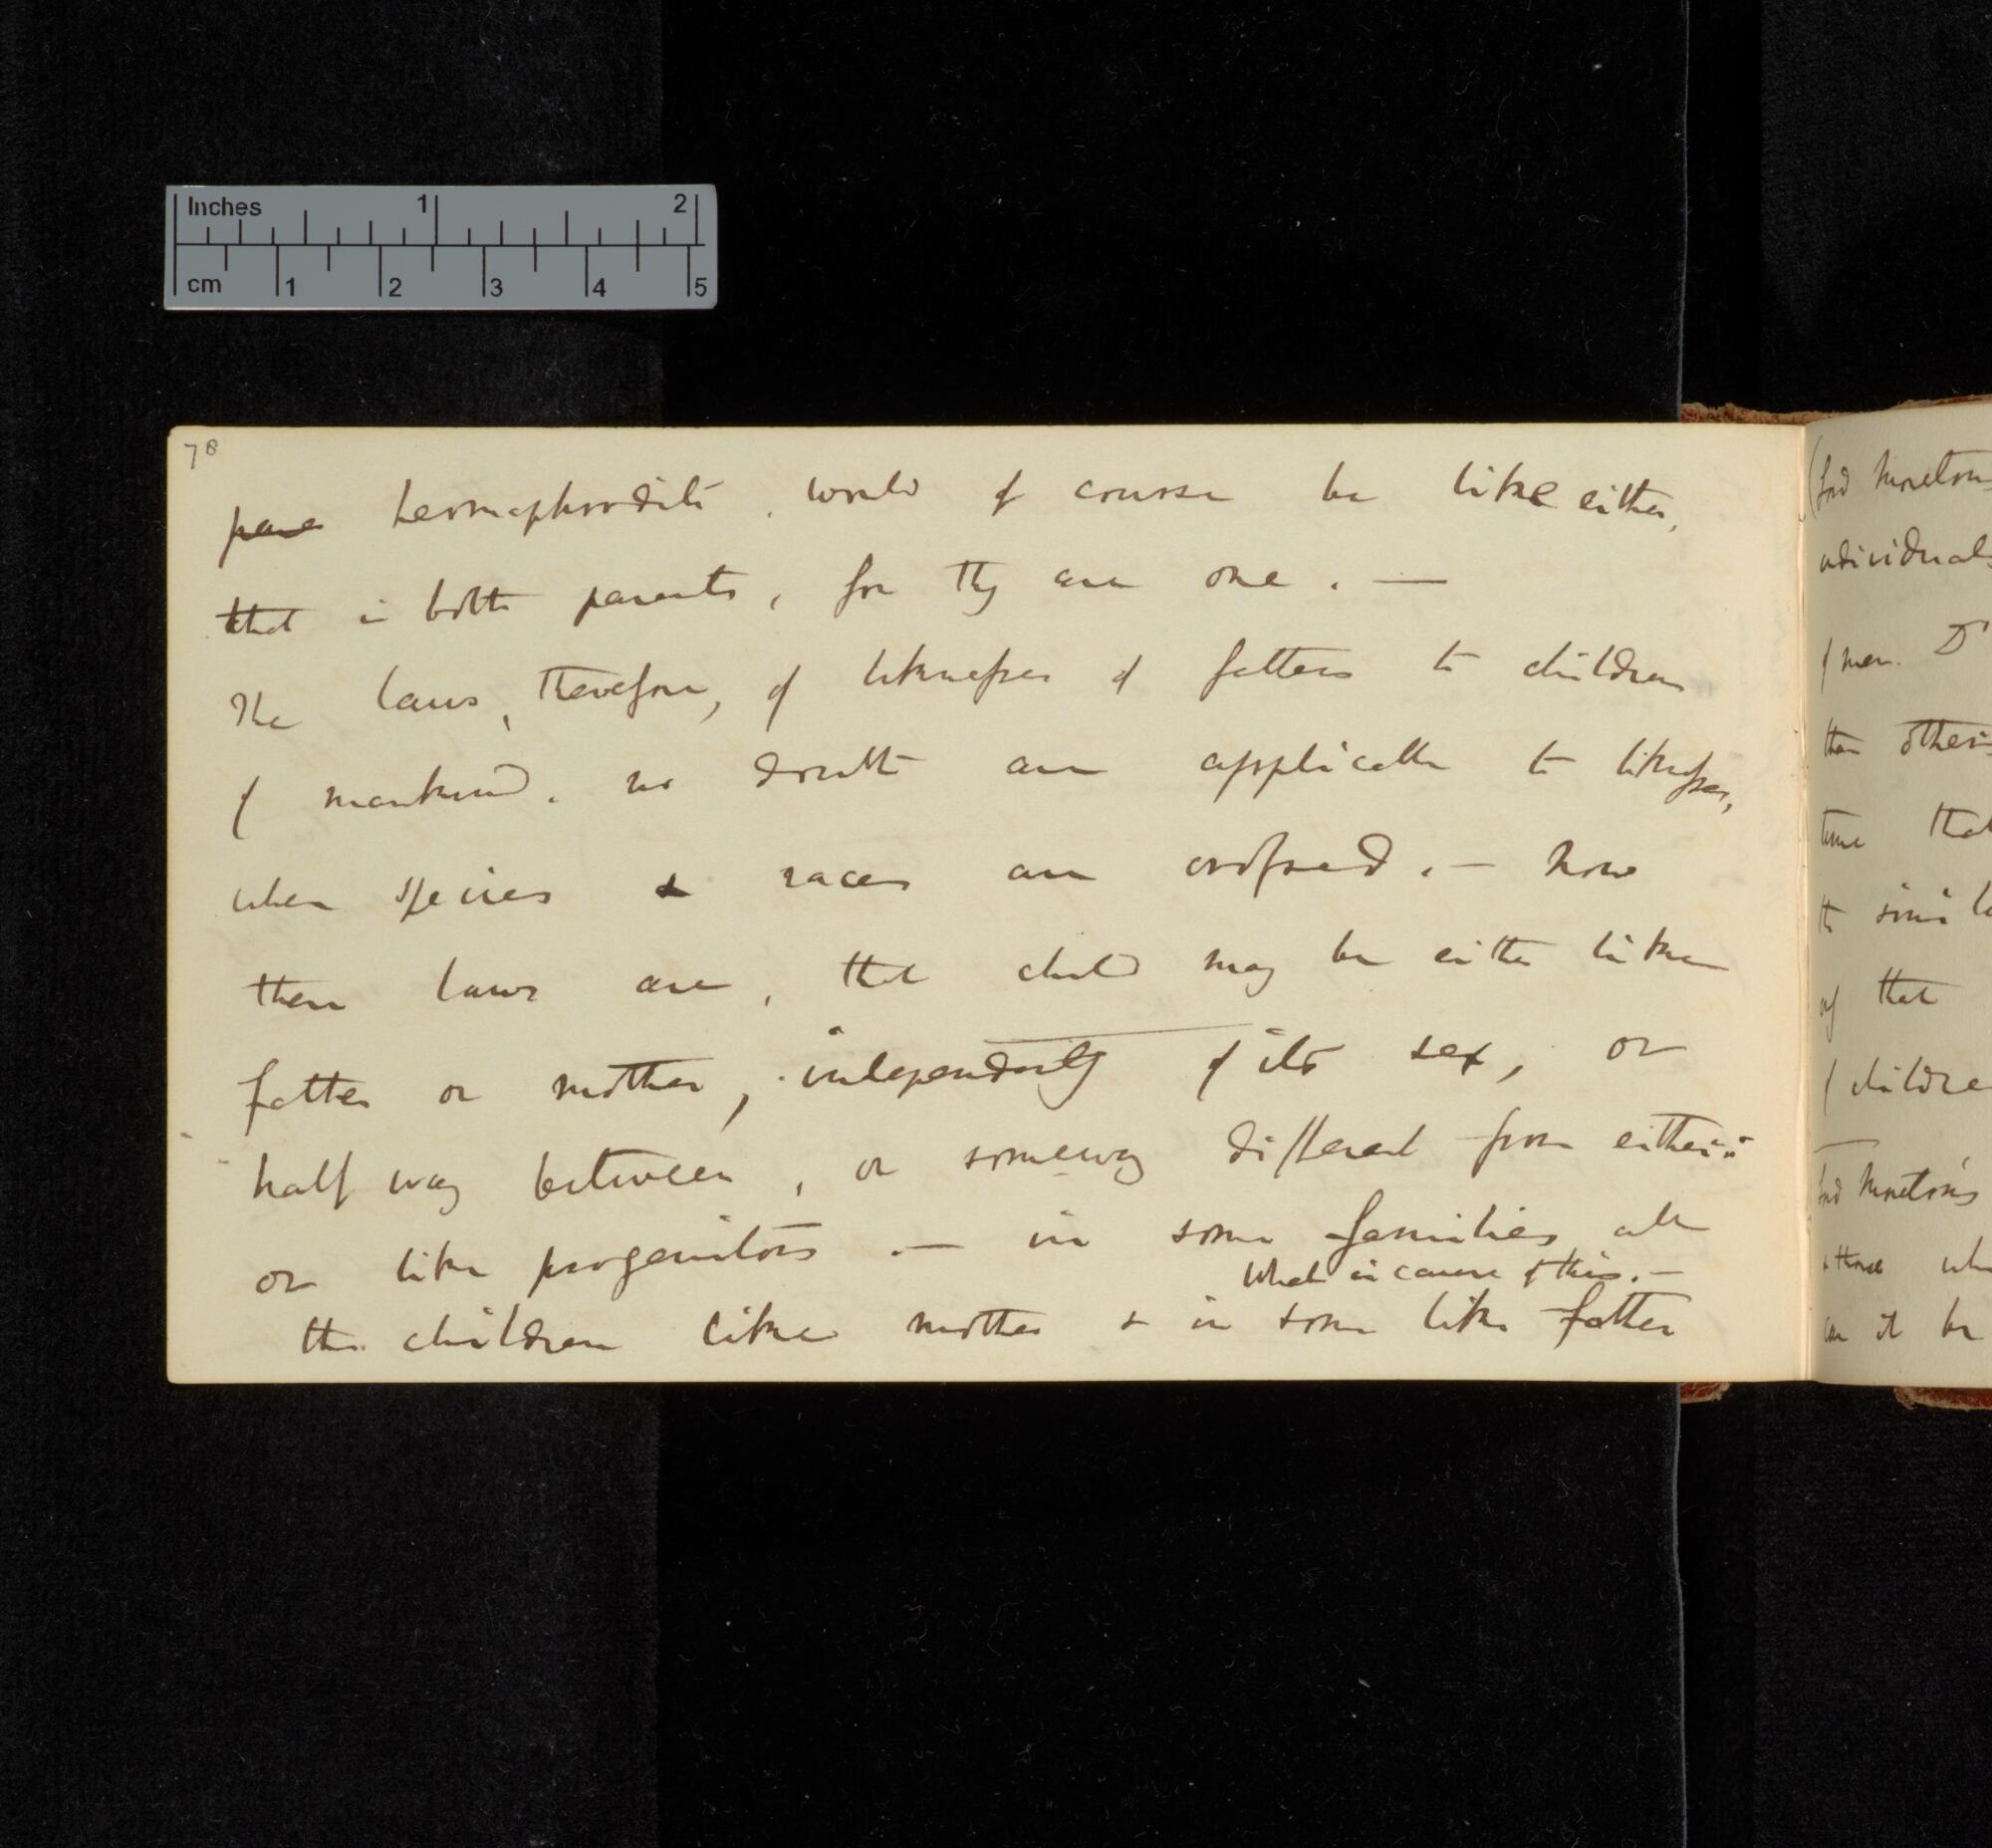 Inches 1 2
cm 1 2 3 4 5
78
hermaphrodite, would of course be like either,
that is both parents, for they are one. —
The laws, therefore, of likenesses of fathers to children
of mankind. no doubt are applicable to likenesses,
when species & races are crossed. — now
these laws are, that child may be either like
father or mother, independently of its sex, or
half way between, or someway different from either:
or like progenitors. — in some families all
What is cause of this. —
the children like mother & in some like father
(Lord Moreton
individuals
of men. Dr
than others
time that
to simil
of that
of childre
Lord Moreton's
& those wh
can it be